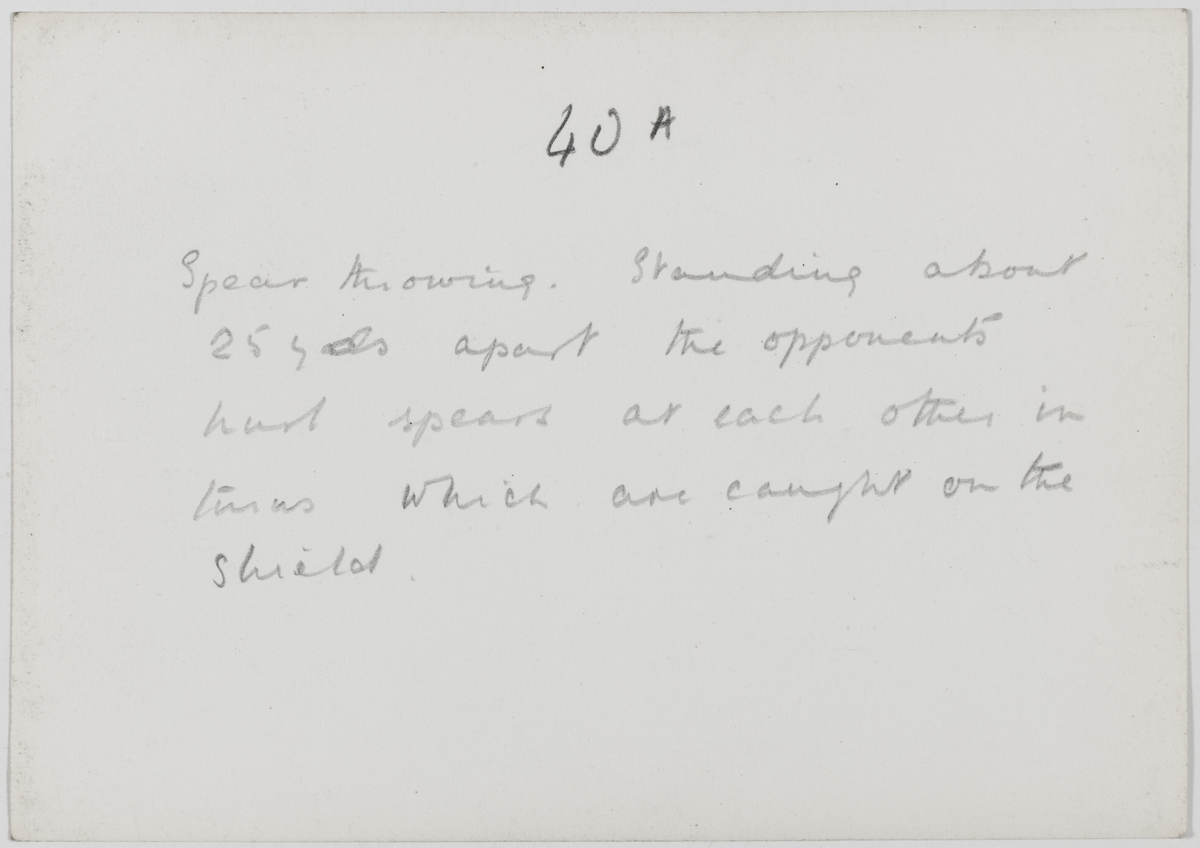 40 A
Spear throwing. Standing about
25 yds apart the opponents
hurl spears at each other in
turns which are caught on the
shield.